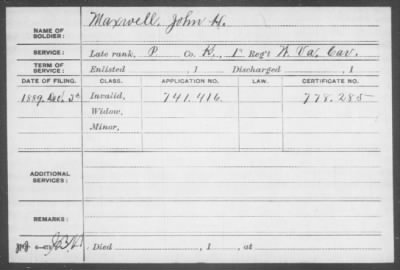 NAME OF SOLDIER: Maxwell, John H.
SERVICE: Late rank, P Co. K, 1 Reg't W. Va. Cav.
TERM OF SERVICE: Enlisted , 1 Discharged , 1
DATE OF FILING. CLASS. APPLICATION NO. LAW. CERTIFICATE NO.
1889, Dec. Invalid, 741.416 778.285
Widow,
Minor,
ADDITIONAL SERVICES:
REMARKS:
Died , 1 , at